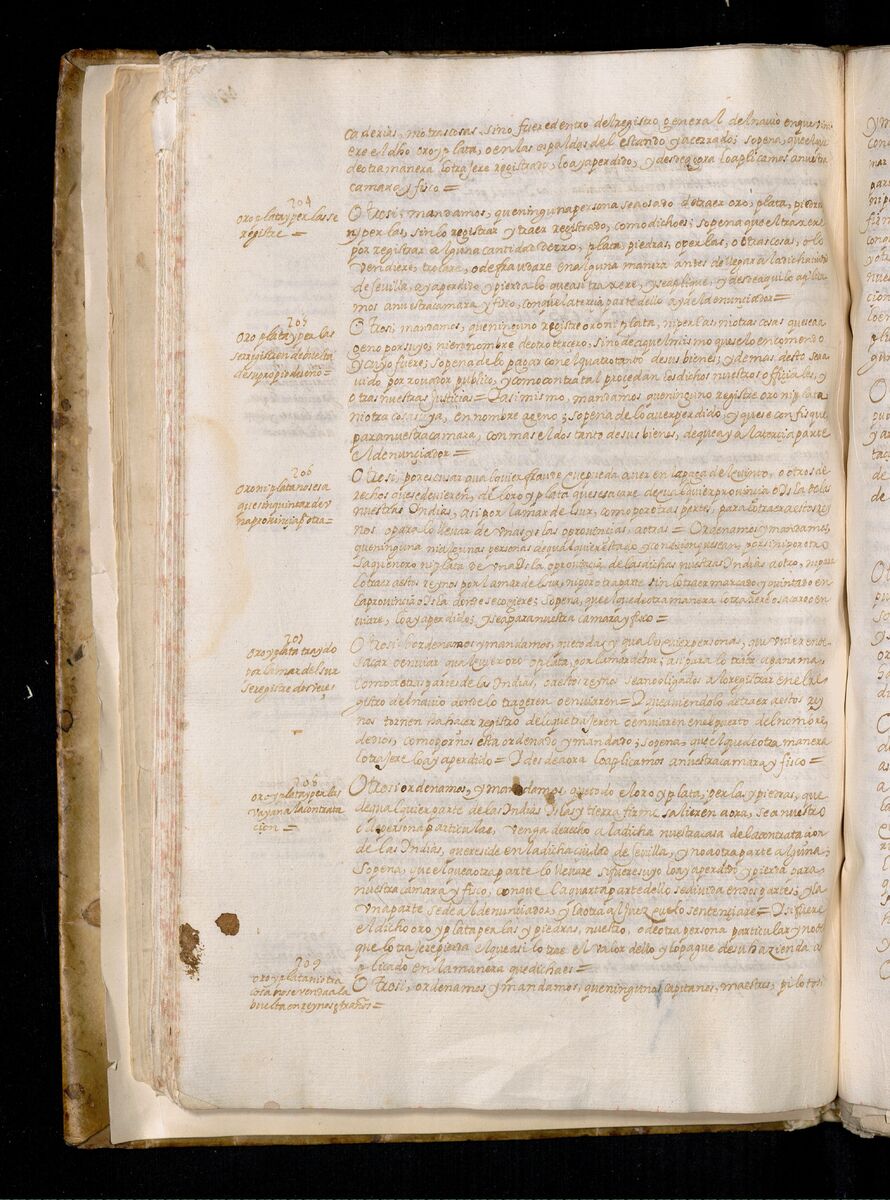 caderias, ni otras cosas, sino fuere dentro del registro general del navio en que vini
ere el dho oro y plata, o en las espaldas del estando ya cerrado; so pena, que el que
de otra manera lo trajere registrado, lo aya perdido, y desde agora lo aplicamos a nuestra
camara y fisco =
204
oro plata y perlas se
registre =
Otrosi; mandamos, que ninguna persona sea osado de traer oro, plata, piedra
ni perlas, sin lo registrar y traer registrado, como dicho es; so pena que el traxere
por registrar alguna cantidad de oro, plata, piedras, o perlas, o otras cosas, o lo
vendiere, trocare, o defraudare en alguna manera antes de llegar a la dicha ciudad
de Sevilla, aya perdido y pierda lo que asi traxere, y se aplique, y desde aqui lo aplica
mos a nuestra camara y fisco, con que la tercia parte dello aya el denunciador =
205
Oro plata y perlas
se registren de buelta
de su propio dueño =
Otrosi; mandamos, que ninguno registre oro ni plata, ni perlas, ni otras cosas que sea a
geno por suyo, ni en nombre de otro tercero, sino de aquel mismo que se lo encomendo
y cuyo fuere; so pena de lo pagar con el quatro tanto de sus bienes; y demas desto sea a
vido por rovador publico, y como contra tal procedan los dichos nuestros officiales, y
otras nuestras justicias = Y asi mismo, mandamos que ninguno registre oro ni plata
ni otra cosa suya, en nombre ageno; so pena de lo aver perdido, y que se confisque
para nuestra camara, con mas el dos tanto de sus bienes, de que aya la tercia parte
el denunciador =
206
Oro ni plata no se sa
que sin quintar de v
na provincia p.ª otra =
Otrosi, por escusar qualquier fraude que pueda aver en la paga del quinto, o otros de
rechos que se devieren, del oro y plata que se sacare de qualquier provincia o Isla de las
nuestras Indias, asi por la mar del sur, como por otras partes, para lo traer a estos rey
nos o para lo llevar de unas yslas o provincias, a otras = Ordenamos y mandamos,
que ninguna ni algunas personas de qualquier estado y condicion que sean, por si ni por otro
saquen oro ni plata de una Isla o provincia, de las dichas nuestras Indias a otro, ni para
lo traer a estos reynos por la mar del sur, ni por otra parte sin lo traer marcado y quintado en
la provincia o Isla donde se cogiere; so pena, que el que de otra manera lo traxere o sacare o en
viare, lo aya perdido; y sea para nuestra camara y fisco =
207
Oro y plata traydo
por la mar del sur
se registre dos veçes
Otrosi hordenamos y mandamos, que todas y qualesquier personas, que vinieren o
sacar o enviar qualquier oro o plata, por la mar del sur, asi para lo traer a panama,
como de otras partes de las Indias, o a estos reynos sean obligados a lo registrar en el re
gistro del navio donde lo trageren o enviaren = Y queriendolo de traer a estos rey
nos tornen ha hacer registro de lo que trajeren o enviaren en el puerto del nombre
de Dios, como por nos esta ordenado y mandado; so pena, que el que de otra manera
lo trajere lo aya perdido = Y desde aora lo aplicamos a nuestra camara y fisco =
208
oro y plata y perlas
vayan a la contrata
cion =
Otrosi ordenamos, y mandamos, que todo el oro y plata, perlas y piedras, que
de qualquier parte de las Indias Islas y tierra firme salieren aora, sea nuestro
o de persona particular, venga derecho a la dicha nuestra casa de la contratacion
de las Indias, que reside en la dicha ciudad de Sevilla, y no a otra parte alguna;
so pena, que el que a otra parte lo llevare si fuere suyo lo aya perdido y pierda para
nuestra camara y fisco, con que la quarta parte dello se divida en dos partes; y la
una parte se de al denunciador, y la otra al Juez que lo sentenciare = Y si fuere
el dicho oro y plata perlas y piedras, nuestro, o de otra persona particular y no del
que lo trajere pierda el que asi lo trae el valor dello y lo pague de su hazienda a
plicado en la manera que dicha es =
209
oro y plata ni otra
cosa no se venda a la
buelta en reynos estraños =
Otrosi, ordenamos y mandamos, que ningunos capitanes, maestres, pilotos